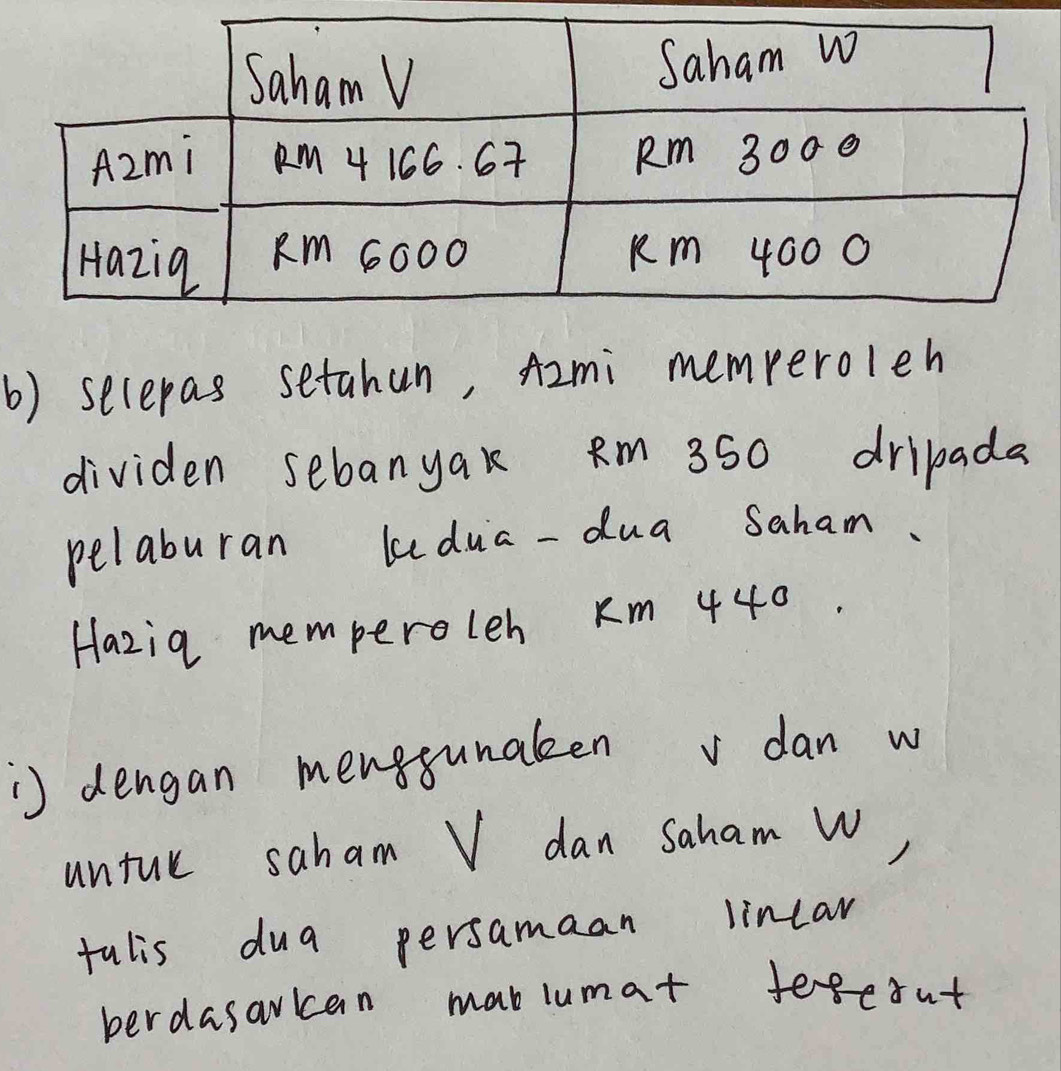 Saham V Saham W
Azmi RM 4 166.67 RM 3000
Haziq RM 6000 RM 4000
b) selepas setahun, Azmi memperoleh
dividen sebanyak RM 350 dripada
pelaburan kedua-dua saham.
Haziq memperoleh RM 440.
i) dengan menggunaken v dan w
untuk saham V dan saham W,
tulis dua persamaan linear
berdasarkan maklumat tersebut